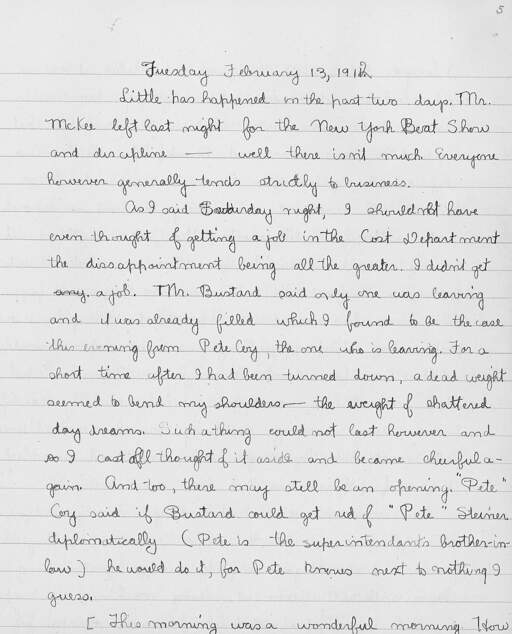 5
Tuesday February 13, 1912
Little has happened in the past two days. Mr.
McKee left last night for the New York Boat Show
and discipline — well there isn't much. Everyone
however generally tends strictly to business.
As I said Saturday night, I should not have
even thought of getting a job in the Cost Department
the dissappointment being all the greater. I didn't get
any. a job. Mr. Bustard said only one was leaving
and it was already filled which I found to be the case
this evening from Pete Coy, the one who is leaving. For a
short time after I had been turned down, a dead weight
seemed to bend my shoulders — the weight of shattered
day dreams. Such a thing could not last however and
so I cast off thought of it aside and became cheerful a-
gain. And too, there may still be an opening. "Pete"
Coy said if Bustard could get rid of "Pete" Steiner
diplomatically (Pete is the superintendants brother-in-
law) he would do it, for Pete knows next to nothing I
guess.
[ This morning was a wonderful morning. How